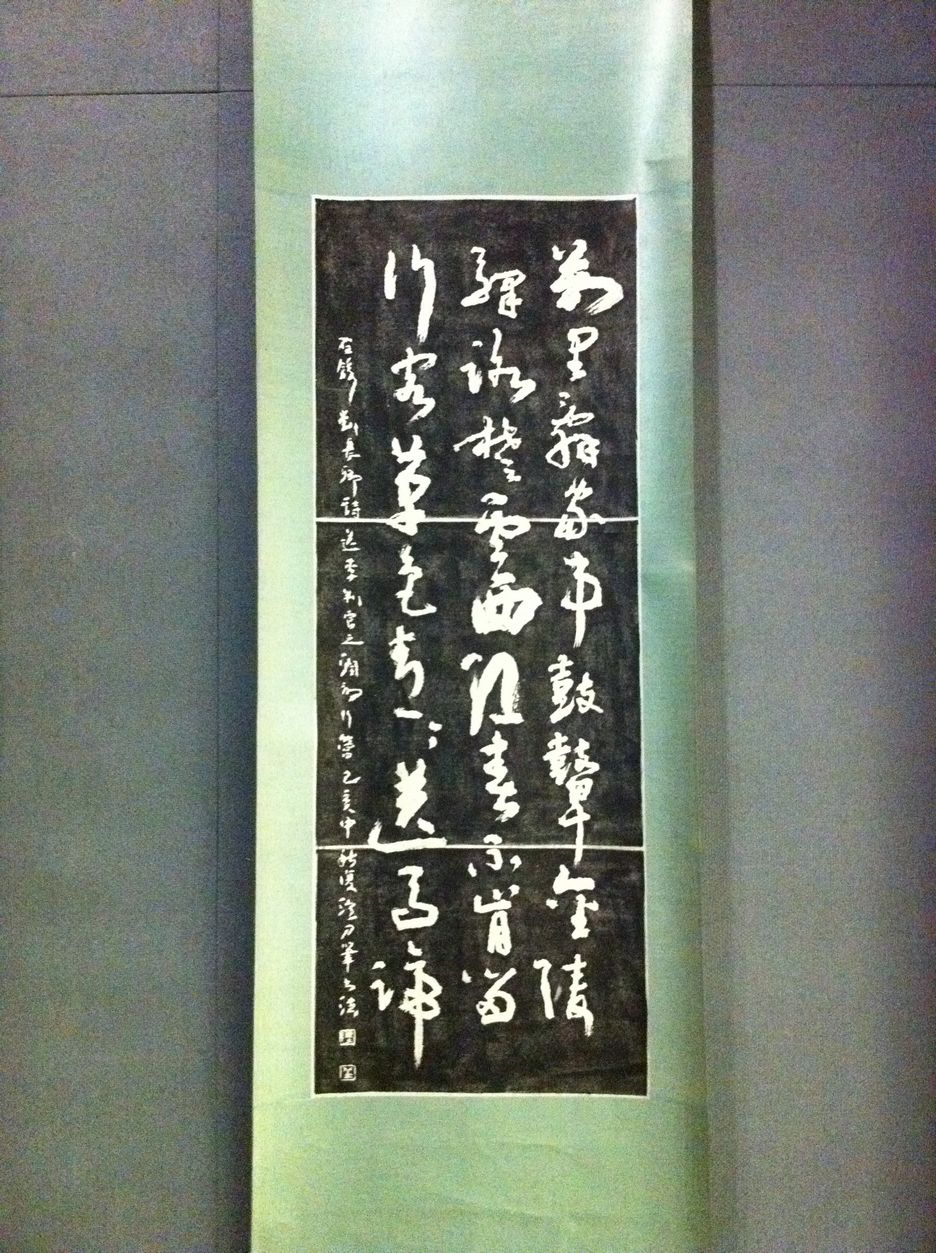 萬里辭家事鼓鼙金陵
驛路楚雲西江春不肯留
行客草色青々送馬蹄
右錄劉長卿詩送李判官之潤州行營